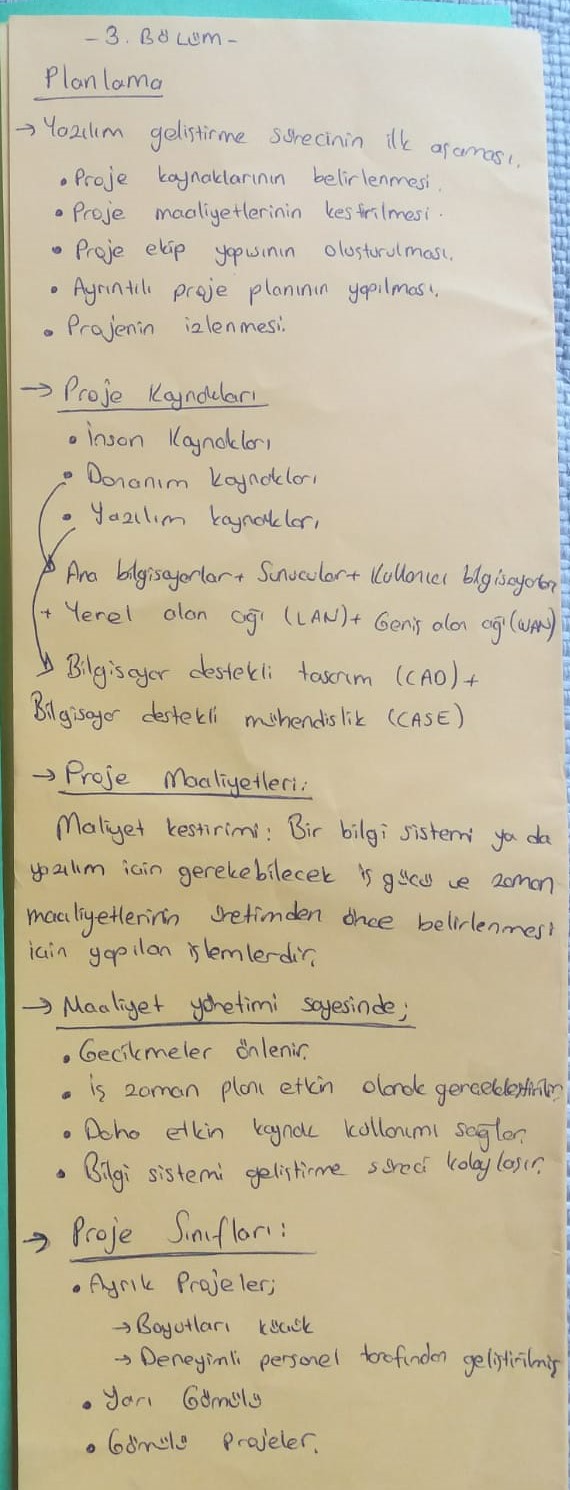 - 3. BÖLÜM -
Planlama
→ Yazılım geliştirme sürecinin ilk aşaması.
• Proje kaynaklarının belirlenmesi.
• Proje maaliyetlerinin kestirilmesi.
• Proje ekip yapısının oluşturulması.
• Ayrıntılı proje planının yapılması.
• Projenin izlenmesi.
→ Proje Kaynakları
• İnsan Kaynakları
• Donanım kaynakları
• Yazılım kaynakları
Ana bilgisayarlar + Sunucular + Kullanıcı bilgisayarları
+ Yerel alan ağı (LAN) + Geniş alan ağı (WAN)
Bilgisayar destekli tasarım (CAD) +
Bilgisayar destekli mühendislik (CASE)
→ Proje Maaliyetleri:
Maliyet kestirimi: Bir bilgi sistemi ya da
yazılım için gerekebilecek iş gücü ve zaman
maaliyetlerinin üretimden önce belirlenmesi
için yapılan işlemlerdir.
→ Maaliyet yönetimi sayesinde;
• Gecikmeler önlenir.
• İş zaman planı etkin olarak gerçekleştirilir.
• Daha etkin kaynak kullanımı sağlar.
• Bilgi sistemi geliştirme süreci kolaylaşır.
→ Proje Sınıfları:
• Ayrık Projeler;
→ Boyutları küçük
→ Deneyimli personel tarafından geliştirilmiş
• Yarı Gömülü
• Gömülü Projeler.